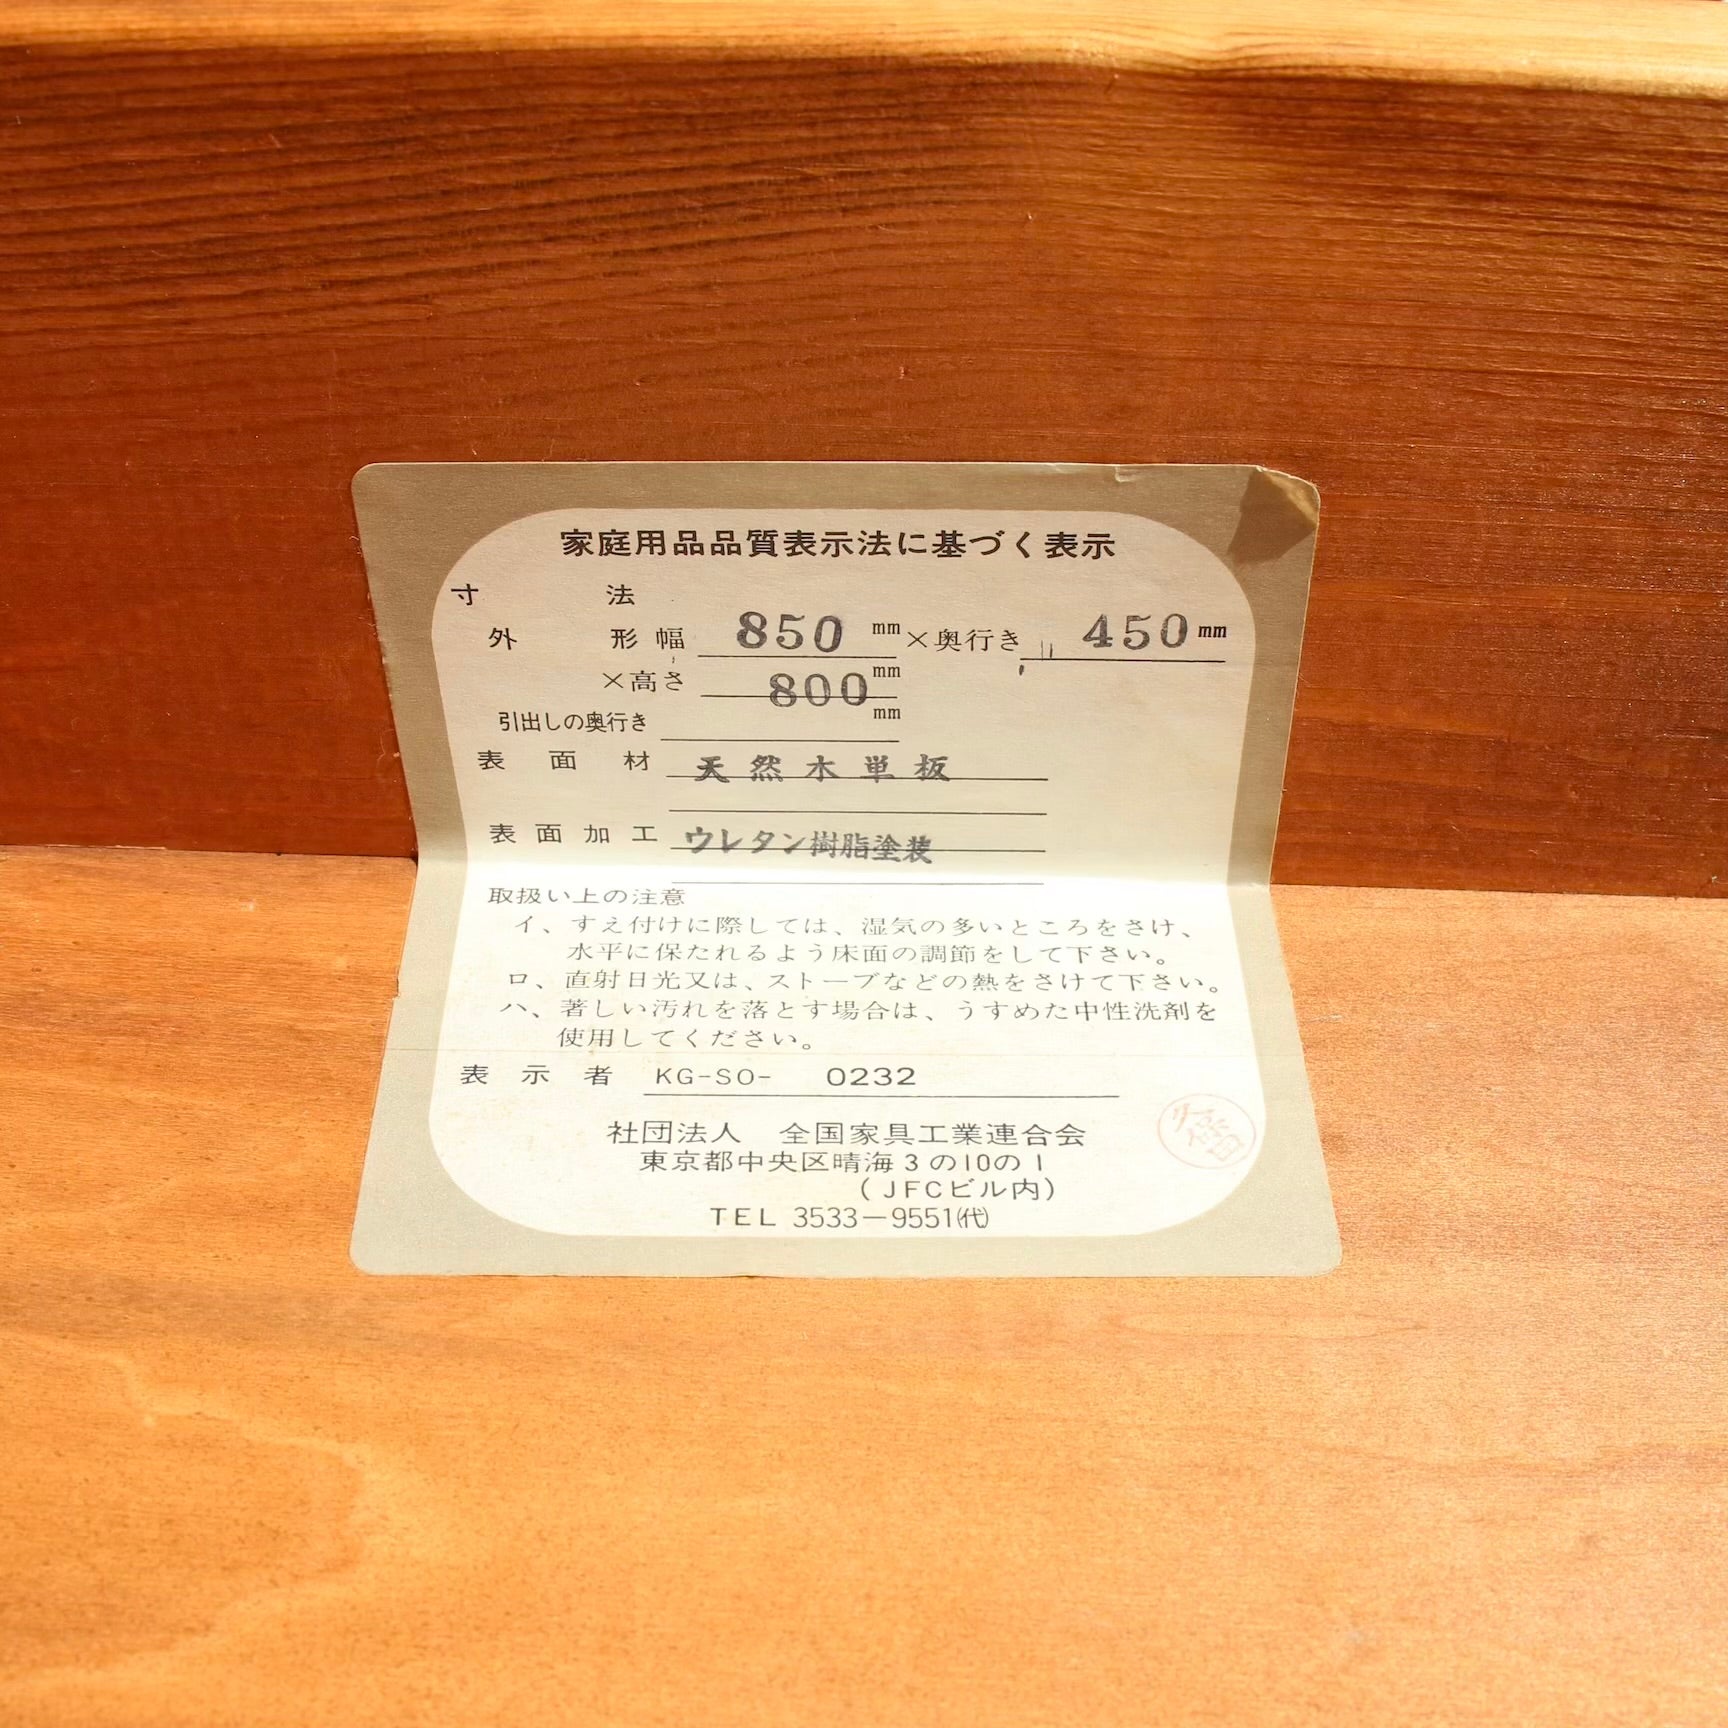 家庭用品品質表示法に基づく表示
寸法
外形幅 850 mm ×奥行き 450 mm
×高さ 800 mm
引出しの奥行き mm
表面材 天然木単板
表面加工 ウレタン樹脂塗装
取扱い上の注意
イ、すえ付けに際しては、湿気の多いところをさけ、
水平に保たれるよう床面の調節をして下さい。
ロ、直射日光又は、ストーブなどの熱をさけて下さい。
ハ、著しい汚れを落とす場合は、うすめた中性洗剤を
使用してください。
表示者 KG-SO- 0232
社団法人 全国家具工業連合会
東京都中央区晴海3の10の1
(JFCビル内)
TEL 3533-9551(代)
久保田